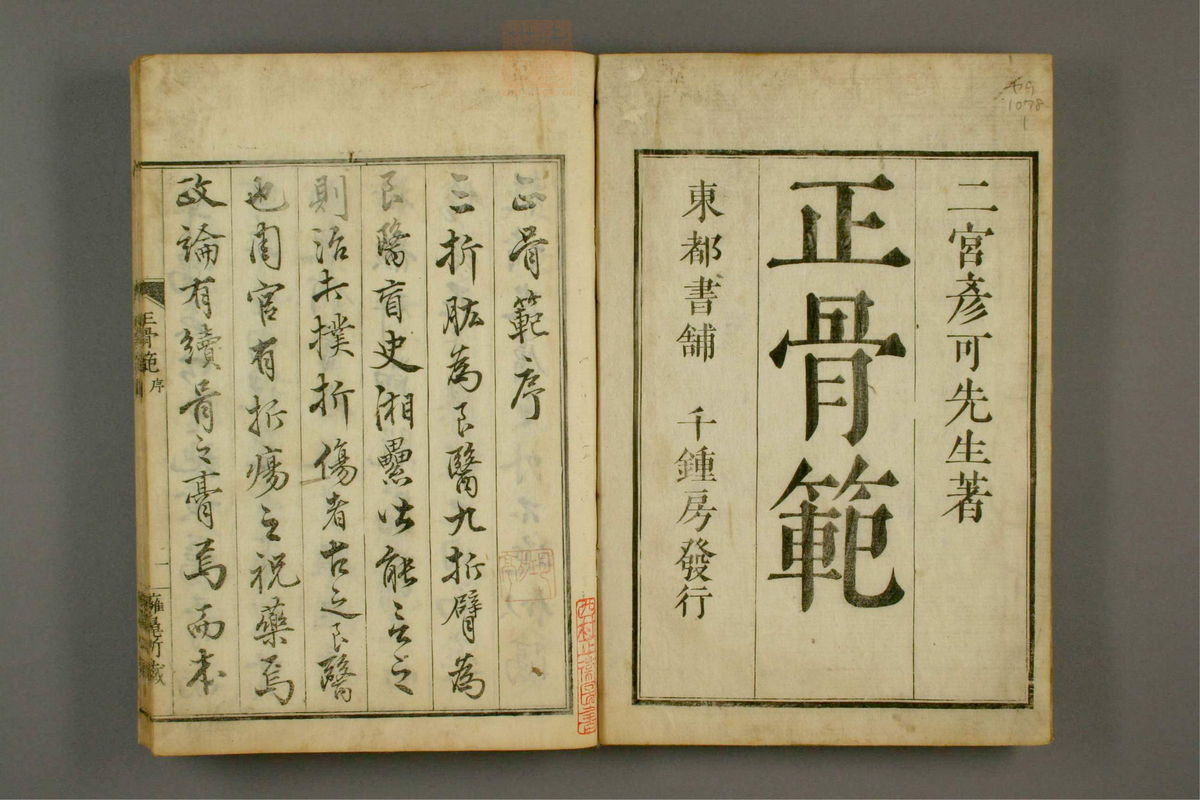 二宮彥可先生著
正骨範
東都書舖 千鍾房發行
1078
1
正骨範序
三折肱為良醫九折臂為
良醫盲史湘纍皆能言之
則治夫撲折傷者古之良醫
也周官有折瘍之祝藥焉
政論有續骨之膏焉而本
正骨範 序